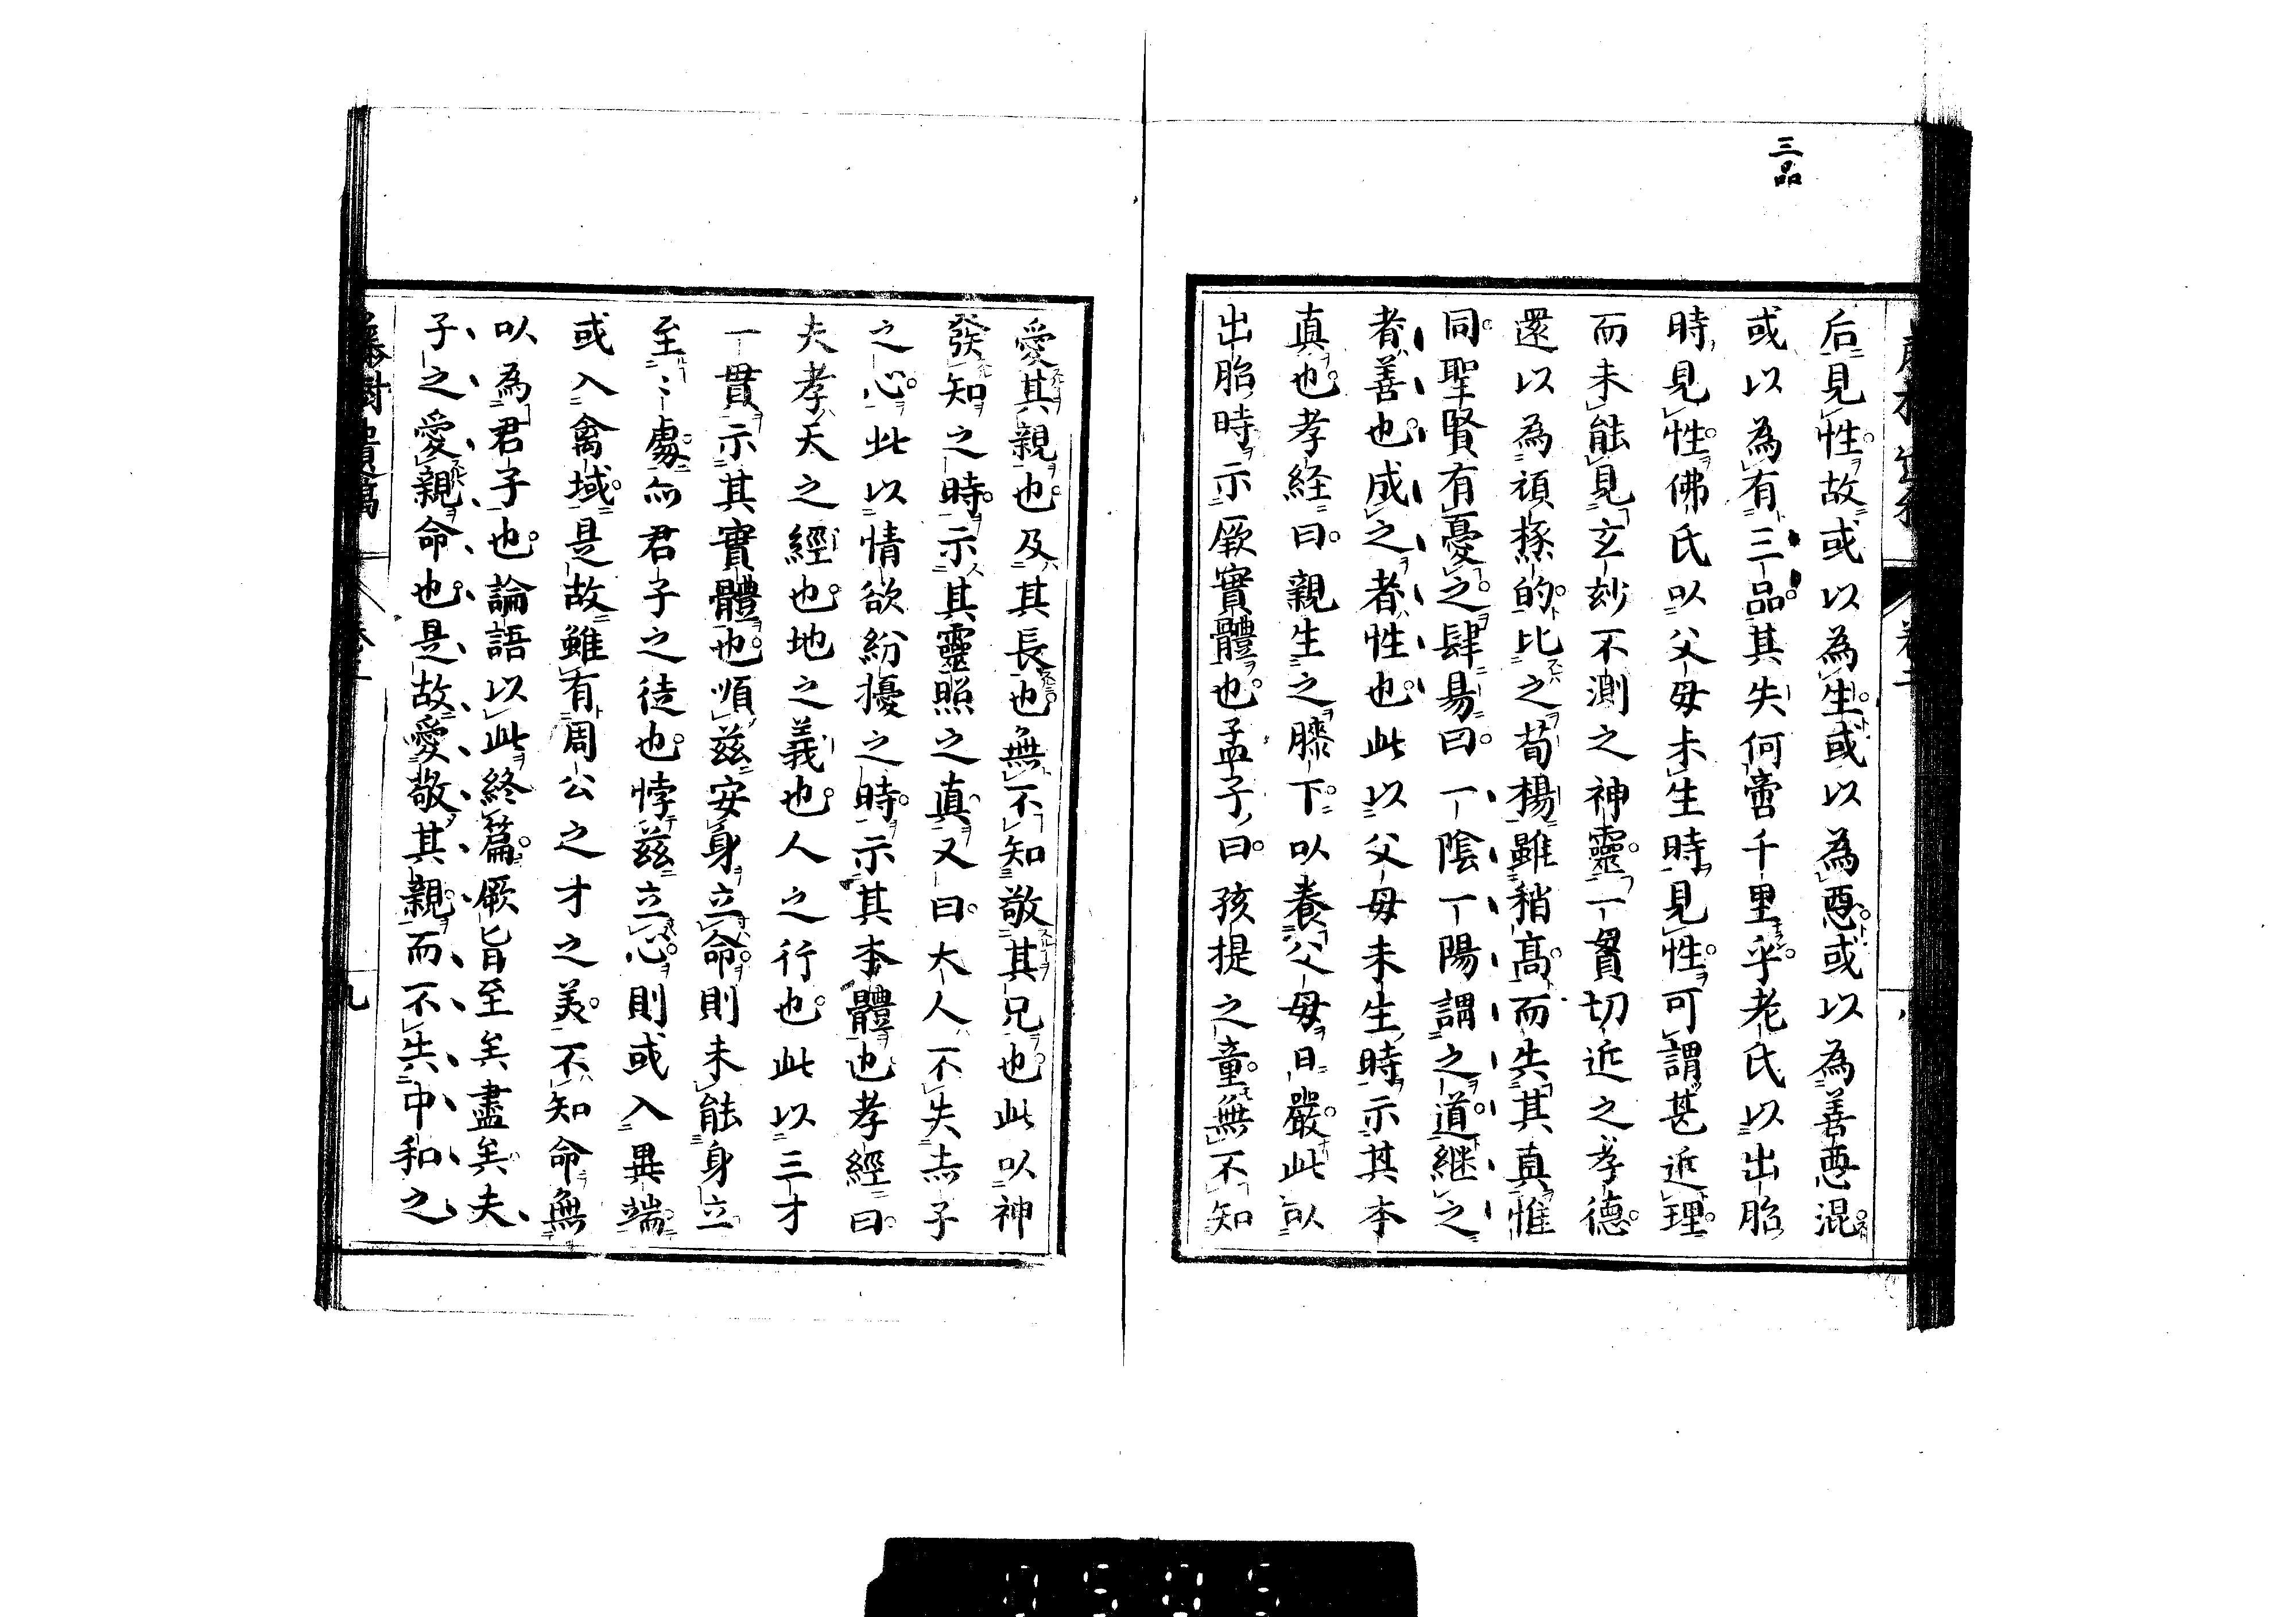 三品
后見性故或以為生或以為惡或以為善惡混
或以為有三品其失何啻千里乎老氏以出胎
時見性佛氏以父母未生時見性可謂甚近理
而未能見玄玅不測之神靈一貫切近之孝德
還以為頑
的比之荀楊雖稍高而失其真惟
同聖賢有憂之肆易曰一陰一陽謂之道継之
者善也成之者性也此以父母未生時示其本
真也孝経曰親生之膝下以養父母日嚴此以
出胎時示厥實體也孟子曰孩提之童無不知
愛其親也及其長也無不知敬其兄也此以神
發知之時示其靈照之真又曰大人不失赤子
之心此以情欲紛擾之時示其本體也孝經曰
夫孝天之經也地之義也人之行也此以三才
一貫示其實體也順茲安身立命則未能身立
至〻處
君子之徒也悖茲立心則或入異端
或入禽域是故雖有周公之才之美不知命無
以為君子也論語以此終篇厥旨至矣盡矣夫
子之愛親命也是故愛敬其親而不失中和之
藤樹遺稿
九